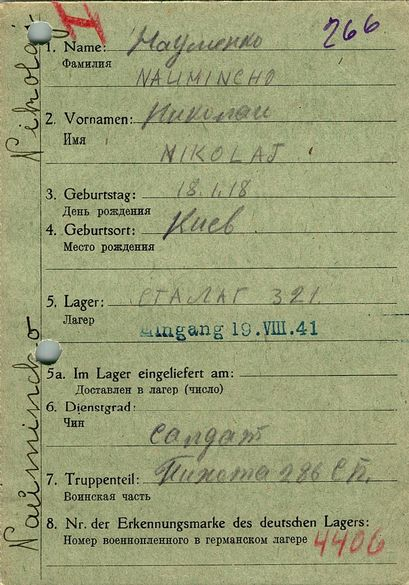 266
1. Name: Науменко
Фамилия
NAUMINCHO
2. Vornamen: Николай
Имя
NIKOLAJ
3. Geburtstag: 18.1.18
День рождения
4. Geburtsort: Киев
Место рождения
5. Lager: СТАЛАГ 321.
Лагер
Eingang 19. VIII. 41
5a. Im Lager eingeliefert am:
Доставлен в лагер (число)
6. Dienstgrad:
Чин
Салдат
7. Truppenteil: Пихота 286 СП.
Воинская часть
8. Nr. der Erkennungsmarke des deutschen Lagers:
Номер военнопленного в германском лагере 4406
Naumincko Nikolaj